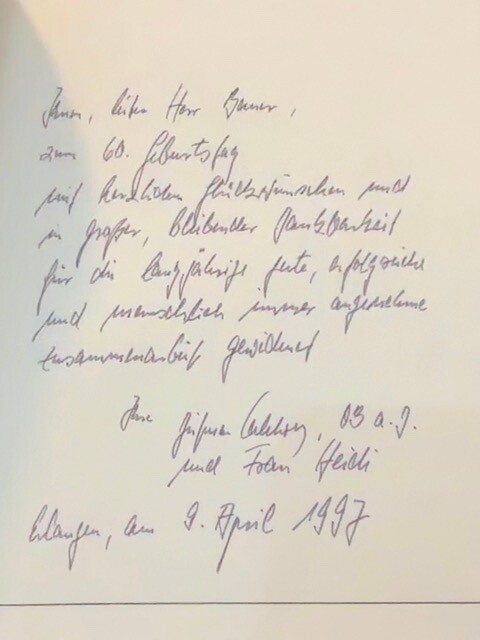 Ihnen, lieber Herr Bauer,
zum 60. Geburtstag
mit herzlichen Glückwünschen und
in großer, bleibender Dankbarkeit
für die langjährige gute, erfolgreiche
und menschlich immer angenehme
Zusammenarbeit gewidmet
Ihr OB a.D.
und Frau Heidi
Erlangen, am 9. April 1997